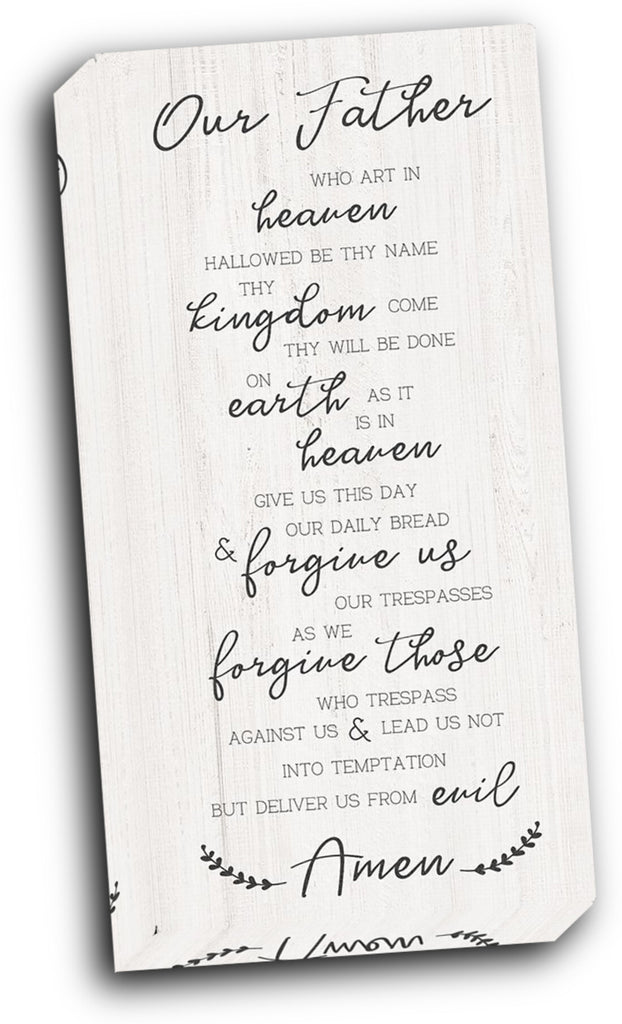 Our Father
WHO ART IN
heaven
HALLOWED BE THY NAME
THY
kingdom COME
THY WILL BE DONE
ON
earth AS IT
IS IN
heaven
GIVE US THIS DAY
OUR DAILY BREAD
& forgive us
OUR TRESPASSES
AS WE
forgive those
WHO TRESPASS
AGAINST US & LEAD US NOT
INTO TEMPTATION
BUT DELIVER US FROM evil
Amen